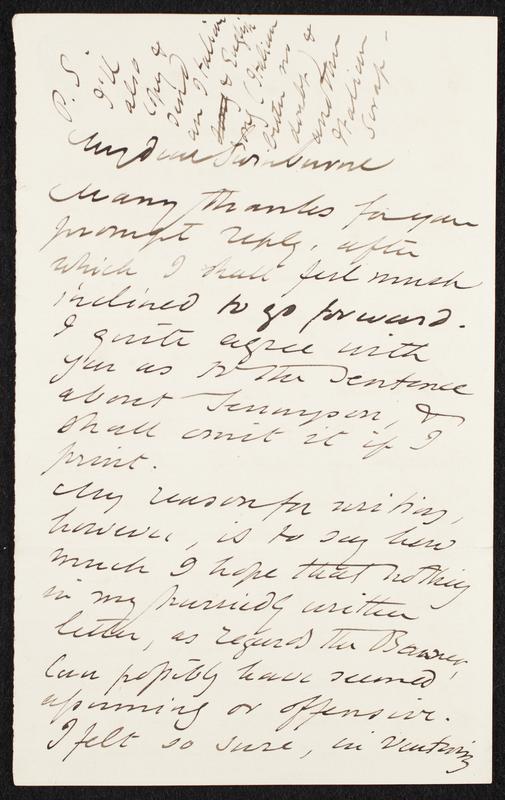 P. S.
I'll
also
copy &
send
an Italian
& English
song (Italian
better no
doubt) &
another
Italian
scrap.
My dear Swinburne
Many thanks for your
prompt reply, after
which I shall feel much
inclined to go forward.
I quite agree with
you as to the sentence
about Tennyson, &
shall omit it if I
print.
My reason for writing,
however, is to say how
much I hope that nothing
in my hurriedly written
letter, as regards the
can possibly have seemed
assuming or offensive.
I felt so sure, in venturing